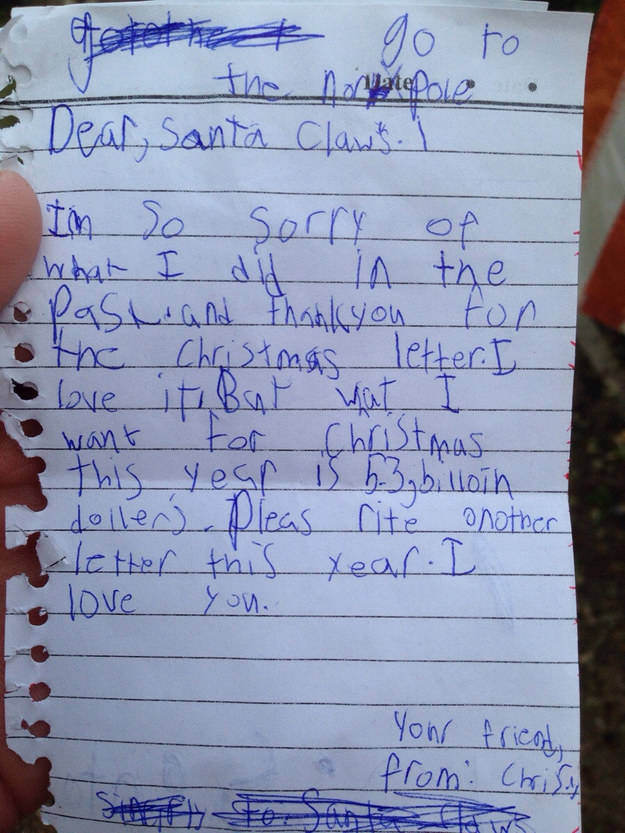 go to
the nor pole
Date
Dear, Santa Claws.
I'm so sorry of
what I did in the
Past. and thankyou for
the christmas letter. I
love it, But what I
want for christmas
this year is 5.3, billoin
doilers. Pleas rite onother
letter this year. I
love you.
Your friend,
from: Chris.
to Santa Claws